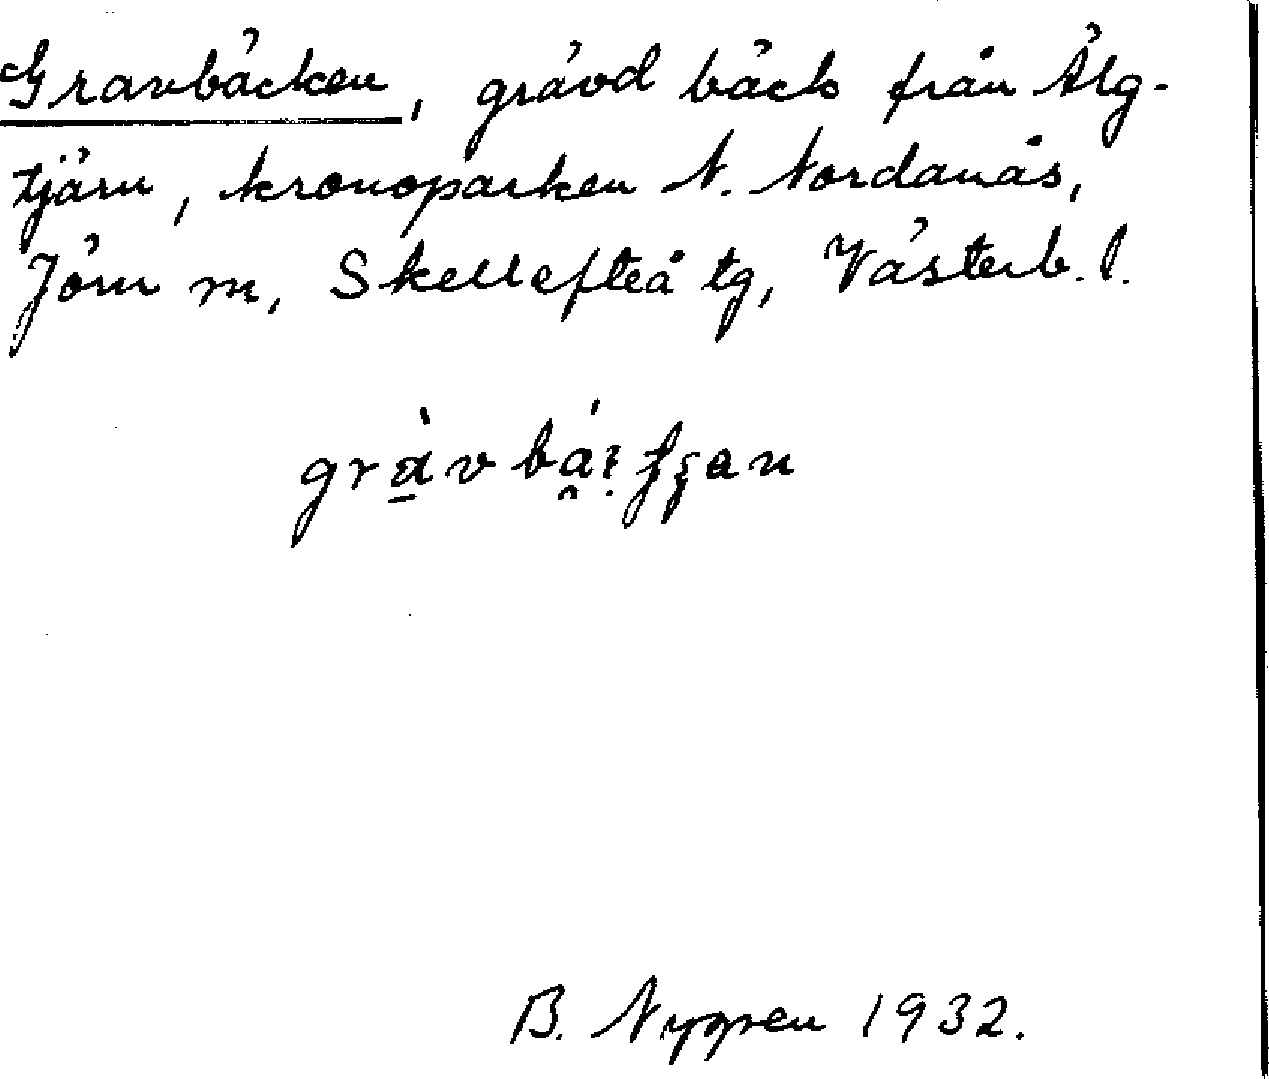 Gravbäcken, grävd bäck från Älg-
tjärn, kronoparken N. Nordanås,
Jörn m, Skellefteå tg, Västerb. l.
B. Nygren 1932.